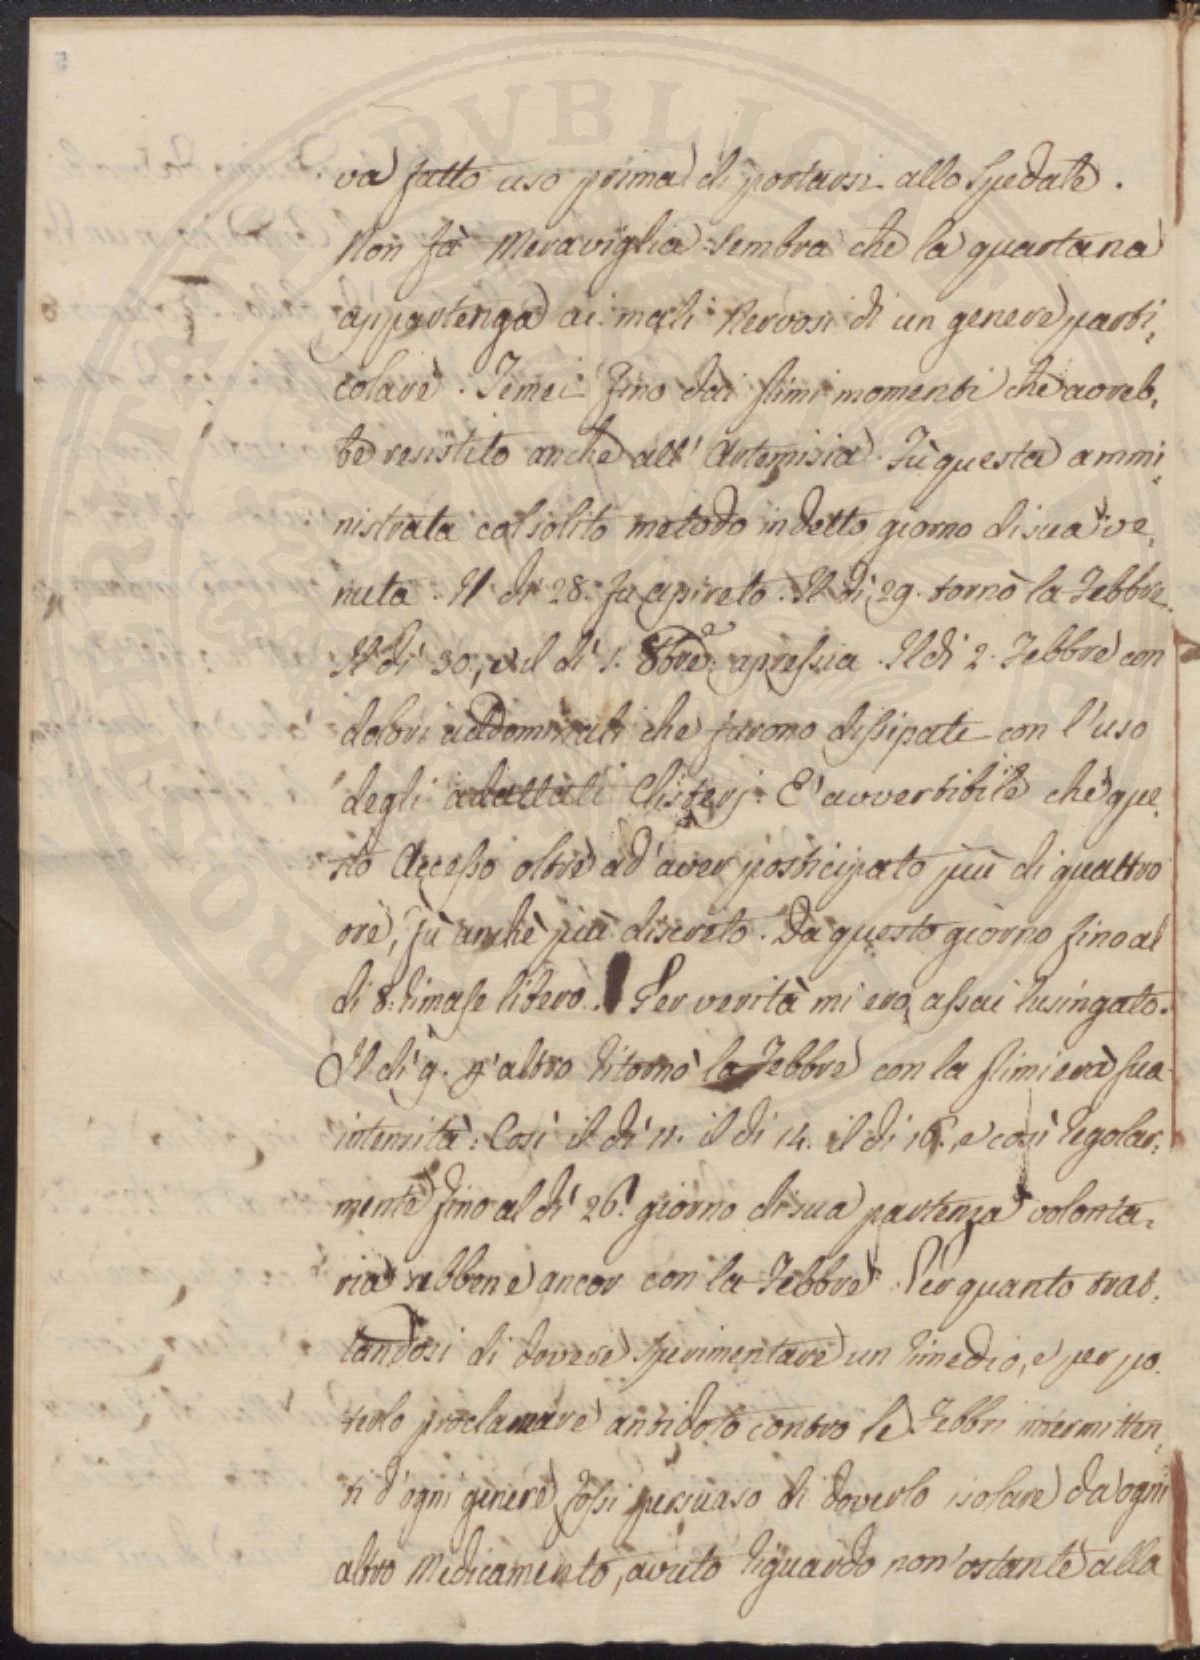 va fatto uso prima di portarsi allo Spedale.
Non fà Meraviglia. Sembra che la quartana
appartenga ai mali Nervosi di un genere parti,
colare. Temei fino dai primi momenti che avreb,
be resistito anche all' Artemisia. Fù questa ammi,
nistrata col solito metodo in detto giorno di sua ve,
nuta. Il di 28. fu apireto. Il di 29. tornò la Febbre.
Il di 30, e il di 1. 8bre apressia. Il di 2. Febbre con
dolori addominali che furono dissipati con l'uso
degli adattati Clisterj. E' avvertibile che que,
sto Accesso oltre ad' aver posticipato più di quattro
ore, fù anche più discreto. Da questo giorno fino al
di 8. rimase libero. Per verità mi ero assai lusingato.
Il di 9. p' altro ritornò la Febbre con la primiera sua
intensità. Così il di 11. il di 14. il di 16., e così regolar,
mente fino al di 26. giorno di sua partenza volonta,
ria sebbene ancor con la Febbre. Per quanto trat,
tandosi di dovere sperimentare un rimedio, e per po,
terlo proclamare antidoto contro le Febbri intermitten,
ti d'ogni genere fossi persuaso di doverlo isolare da ogni
altro Medicamento, avuto riguardo non'ostante alla